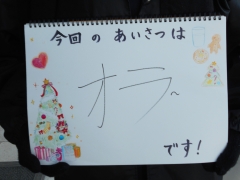 今回のあいさつは
オラ~
です!